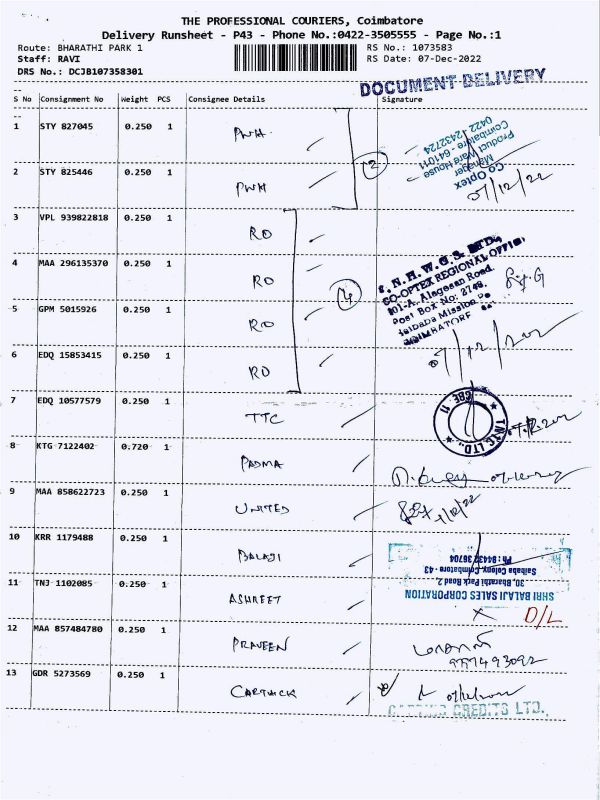 THE PROFESSIONAL COURIERS, Coimbatore
Delivery Runsheet - P43 - Phone No.:0422-3505555 - Page No.:1
Route: BHARATHI PARK 1 RS No.: 1073583
Staff: RAVI RS Date: 07-Dec-2022
DRS No.: DCJB107358301
DOCUMENT DELIVERY
S No Consignment No Weight PCS Consignee Details Signature
1 STY 827045 0.250 1 PWH
Product Ware House
Coimbatore - 641011
0422 - 2432724
Manager
Co Optex
2 STY 825446 0.250 1 PWH
2
07/12/22
3 VPL 939822818 0.250 1 RO
4 MAA 296135370 0.250 1 RO
4
CO-OPTEX REGIONAL OFFICE
101-A, Alagesan Road,
Post Box No: 2749,
5 GPM 5015926 0.250 1 RO
6 EDQ 15853415 0.250 1 RO
7 EDQ 10577579 0.250 1 TTC
8 KTG 7122402 0.720 1 PADMA
9 MAA 858622723 0.250 1 UNITED
10 KRR 1179488 0.250 1 BALAJI
SHRI BALAJI SALES CORPORATION
30, Bharathi Park Road 2
Saibaba Colony, Coimbatore - 43
11 TNJ 1102085 0.250 1 ASHREET
X D/L
12 MAA 857484780 0.250 1 PRAVEEN
13 GDR 5273569 0.250 1 CARTHICK
CREDITS LTD.,